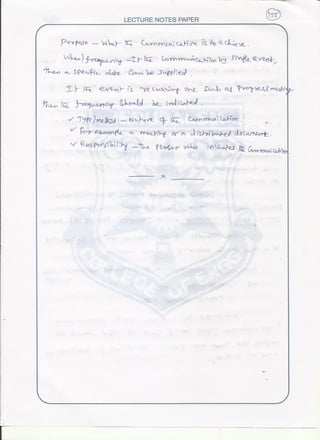 LECTURE NOTES PAPER
155
Purpose – What the Communication is to achieve.
When/frequency – If the Communication by single event,
then a specific date Can be supplied
If the event is recurring one such as Progress meeting
then the frequency Should be indicated.
✓ Type/method – Nature of the Communication
✓ For example a meeting or a distributed document.
✓ Responsibility – The person who initiates the Communication
x
COLLEGE OF ENGG